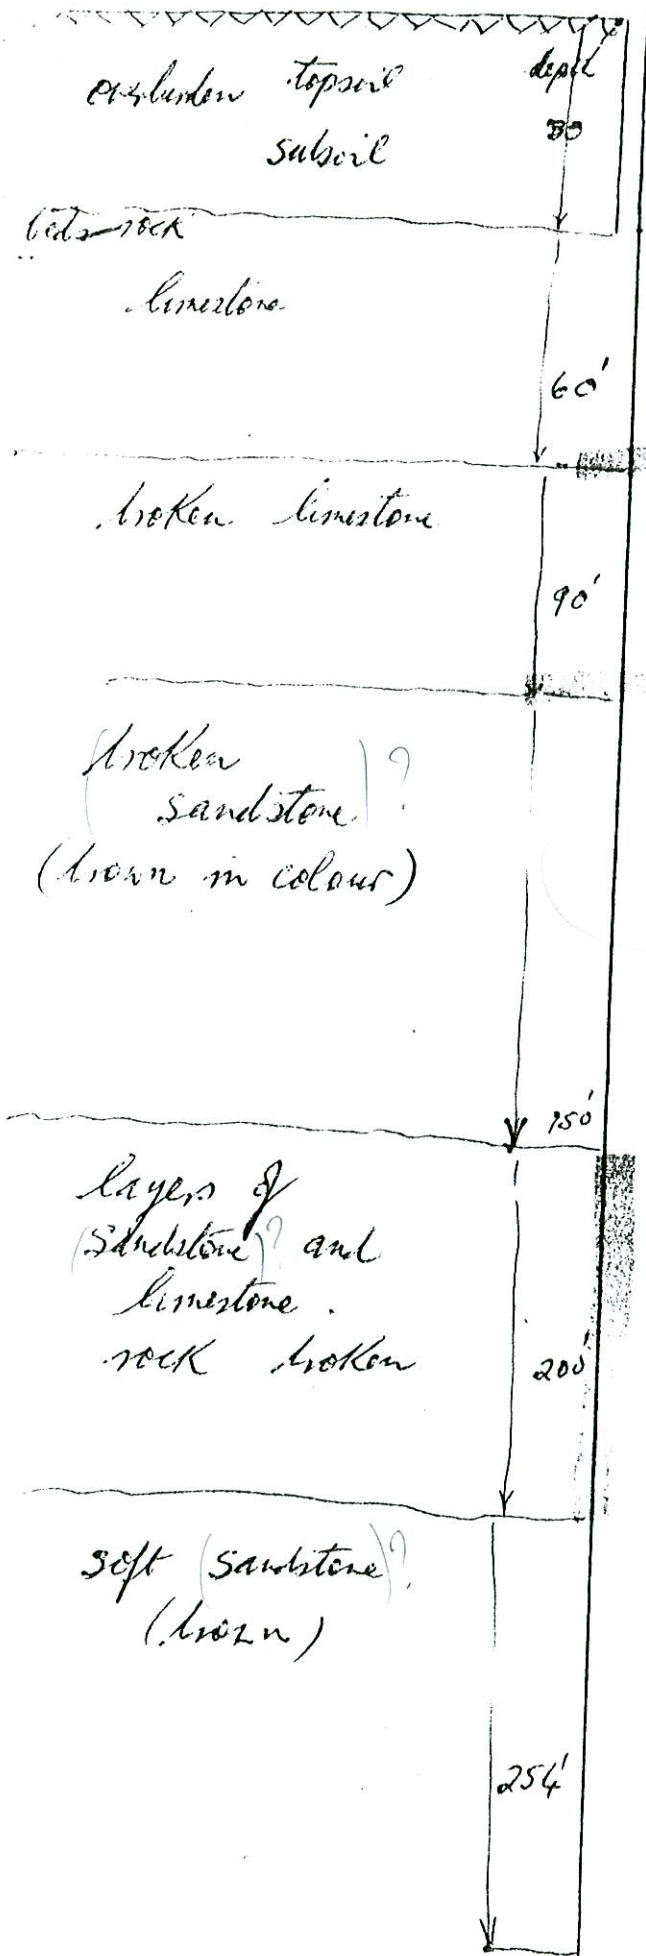 overburden topsoil depth
30
subsoil
bed-rock
limestone
60'
broken limestone
90'
(broken
sandstone)?
(brown in colour)
150'
layers of
(sandstone)? and
limestone.
rock broken
200'
soft (sandstone)?
(brown)
254'